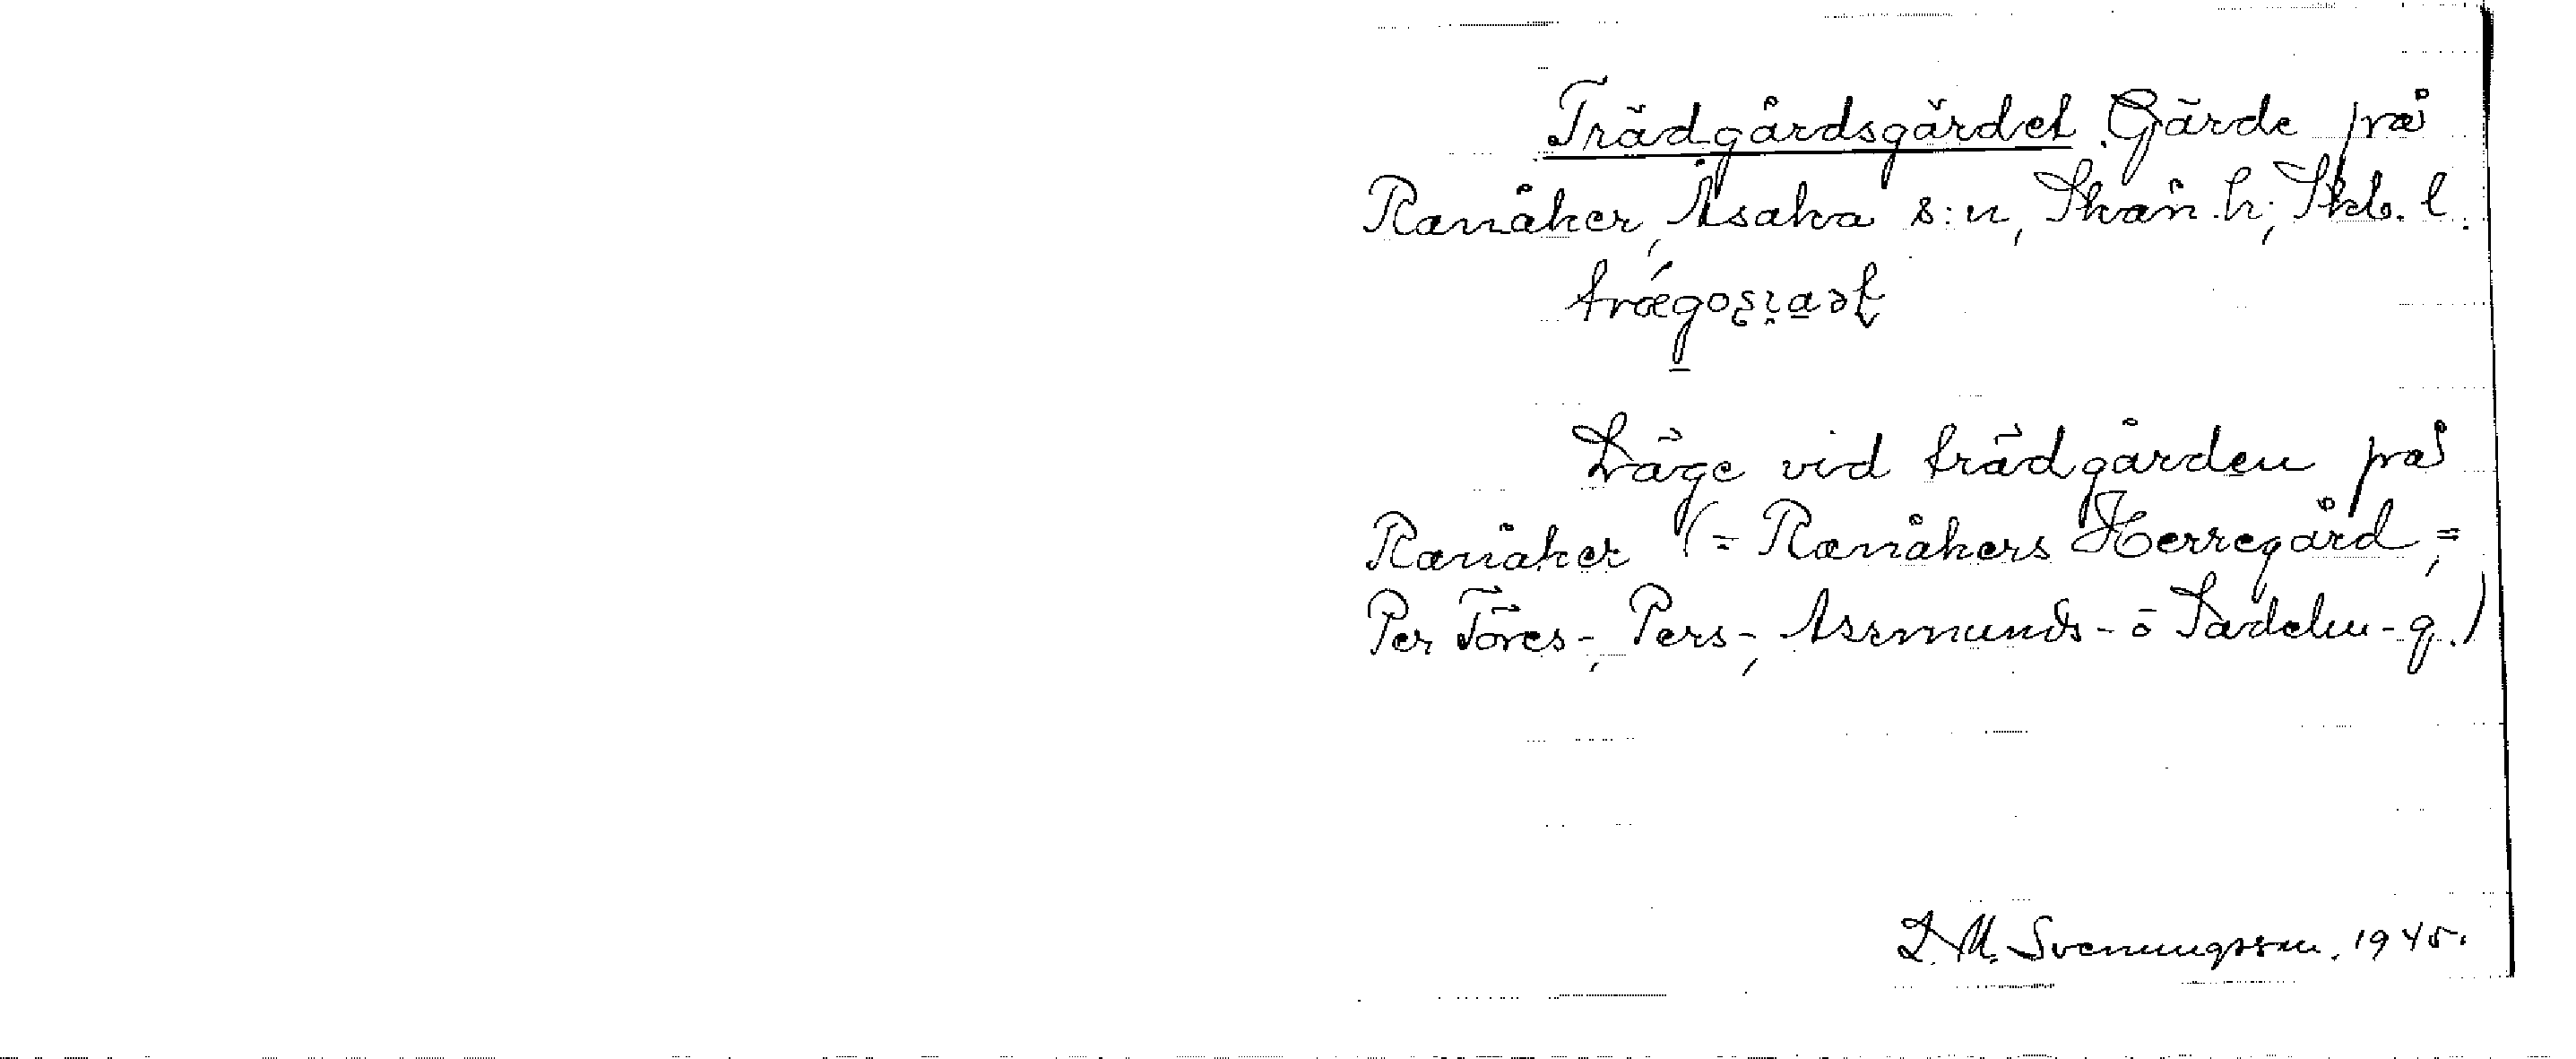 Trädgårdsgärdet. Gärde på
Ranåker, Åsaka s:n, Skån. h., Skb. l.
Läge vid trädgården på
Ranåker (= Ranåkers Herregård, =
Per Töres-, Pers-, Assmunds- o
L. M. Svenungsson. 1945.